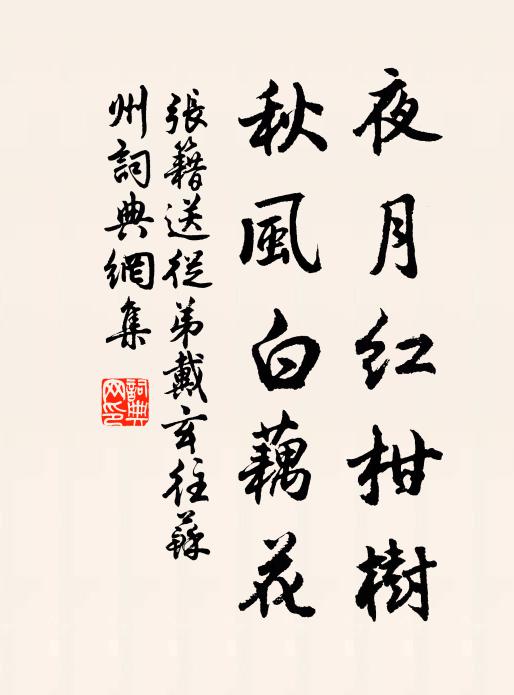 夜月紅柑樹
秋風白藕花
張籍送從弟戴玄往蘇
州詞典網集
詞典網印